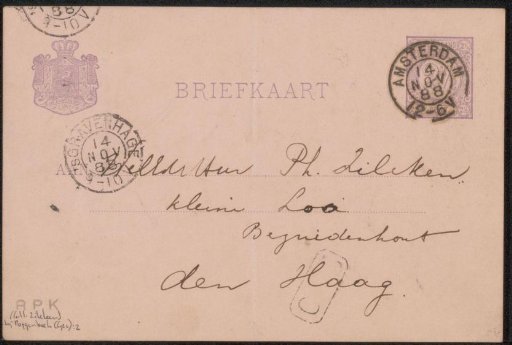 BRIEFKAART
AMSTERDAM
14
NOV
88
12-6V
'SGRAVENHAGE
14
NOV
88
9-10V
88
9-10V
Ph. Zilcken.
kleine Loo
Bezuidenhout
den Haag.
RPK
(Coll: Zilcken)